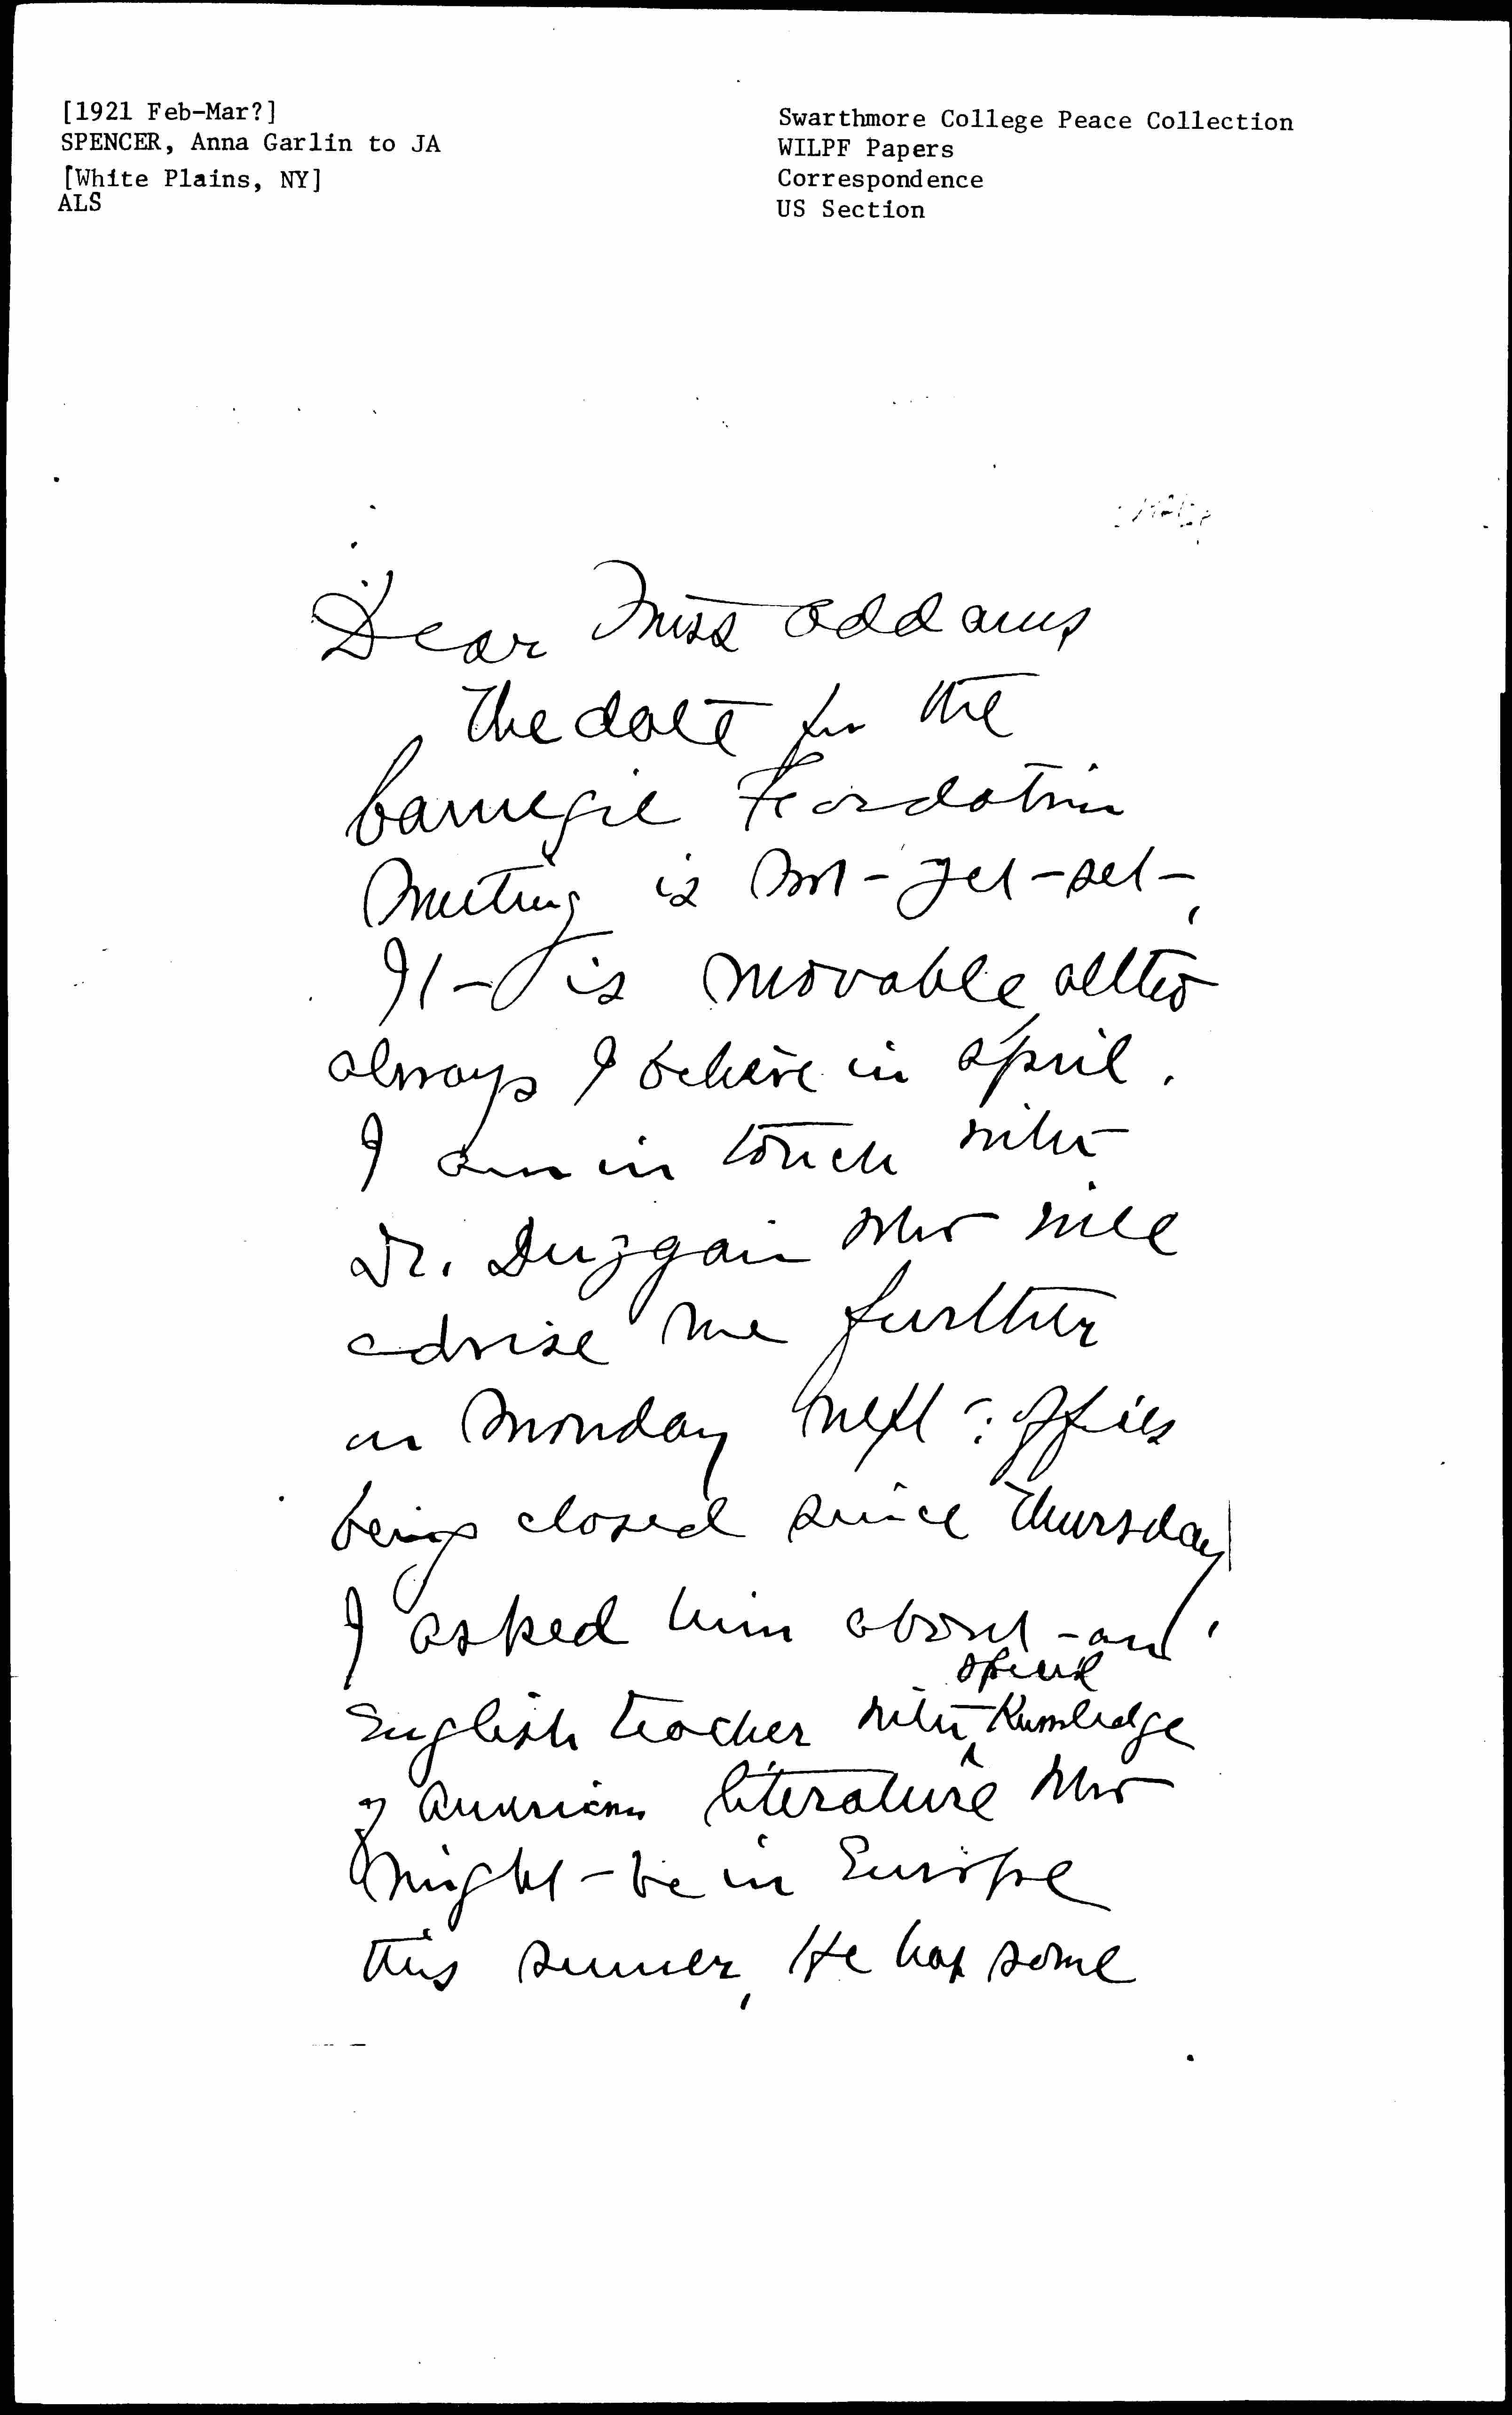 [1921 Feb-Mar?]
SPENCER, Anna Garlin to JA
[White Plains, NY]
ALS
Swarthmore College Peace Collection
WILPF Papers
Correspondence
US Section
Dear Miss Addams
The date for the
Carnegie Foundation
Meeting is not yet set,
It is movable altho
always I believe in April.
I am in touch with
Dr. Duggan who will
advise me further
on Monday next: offices
being closed since Thursday.
I asked him about an
special
English teacher with knowledge
of American literature who
might be in Europe
this summer, He has some